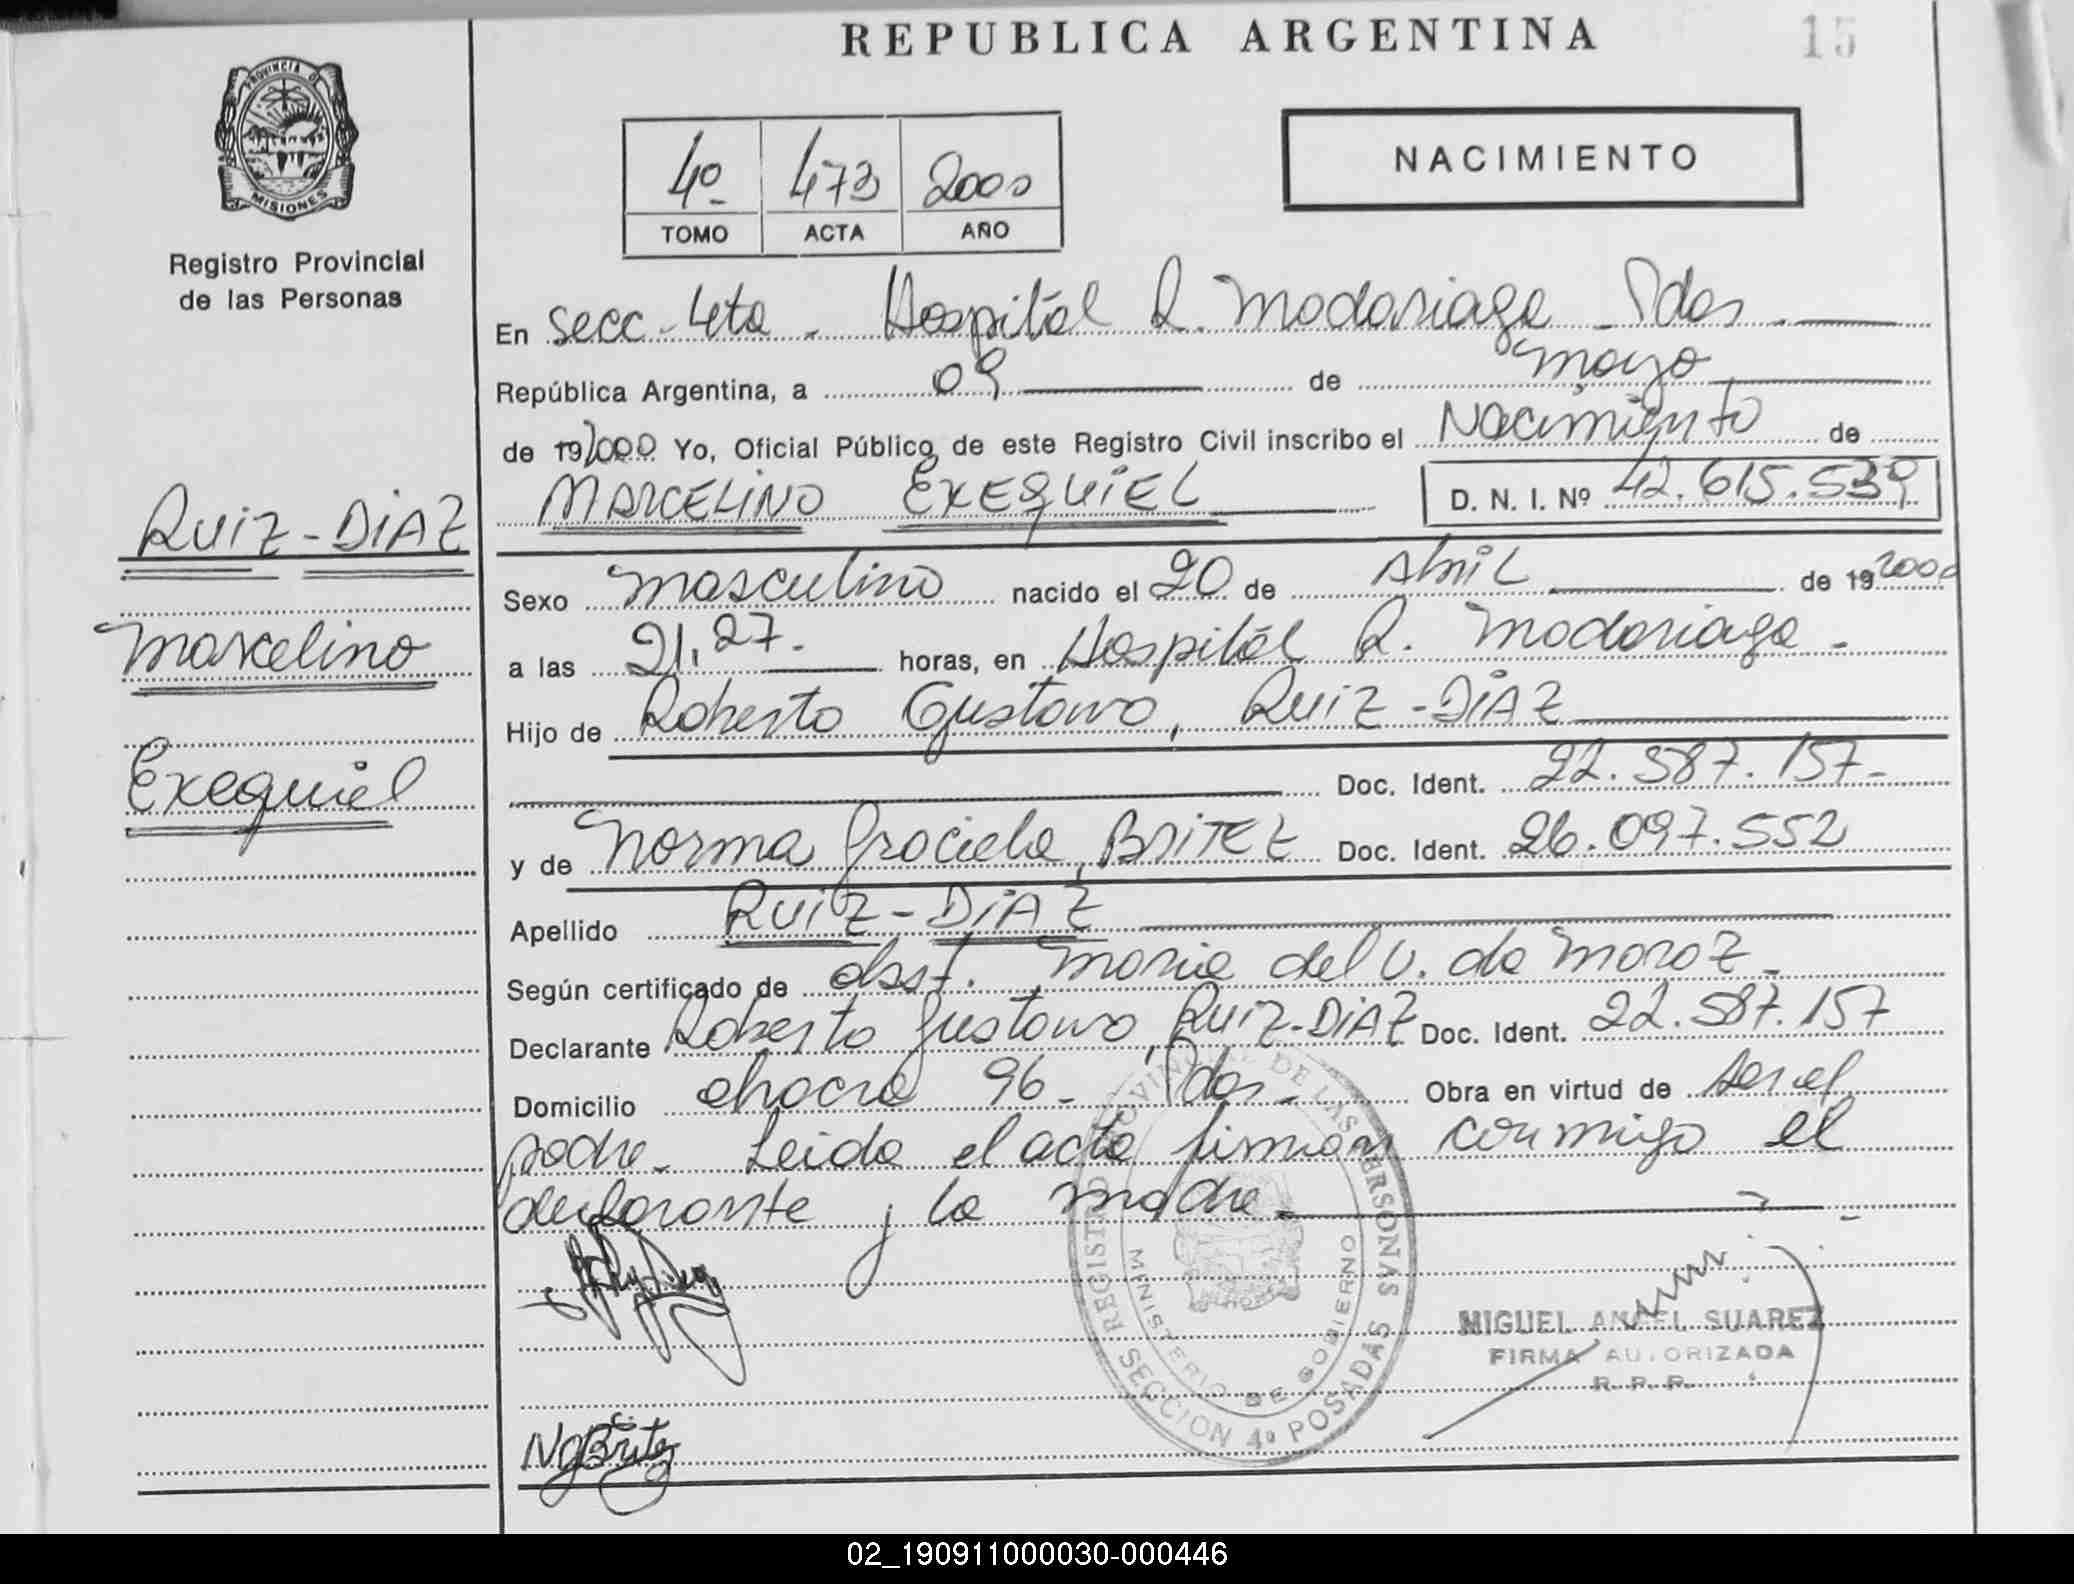 REPUBLICA ARGENTINA
15
PROVINCIA DE
MISIONES
Registro Provincial
de las Personas
4º 473 2000
TOMO ACTA AÑO
NACIMIENTO
En Secc. 4ta. Hospital R. Madariaga - Pdas.
República Argentina, a 09 de mayo
de 192000 Yo, Oficial Público de este Registro Civil inscribo el Nacimiento de
MARCELINO EXEQUIEL D. N. I. Nº 42.615.539
RUIZ-DIAZ
Marcelino
Exequiel
Sexo masculino nacido el 20 de Abril de 192000
a las 21,27.- horas, en Hospital R. Madariaga -
Hijo de Roberto Gustavo, RUIZ-DIAZ
Doc. Ident. 22.587.157-
y de Norma Graciela, BRITEZ Doc. Ident. 26.097.552
Apellido RUIZ-DIAZ
Según certificado de obst. Maria del C. de Moroz -
Declarante Roberto Gustavo, RUIZ-DIAZ Doc. Ident. 22.587.157
Domicilio chacra 96 - Pdas - Obra en virtud de ser el
padre - Leida el acta firman conmigo el
declarante y la madre.
REGISTRO PROVINCIAL DE LAS PERSONAS
MINISTERIO DE GOBIERNO
SECCION 4ª POSADAS
MIGUEL ANGEL SUAREZ
FIRMA AUTORIZADA
R. P. P.
NGBritez
02_190911000030-000446